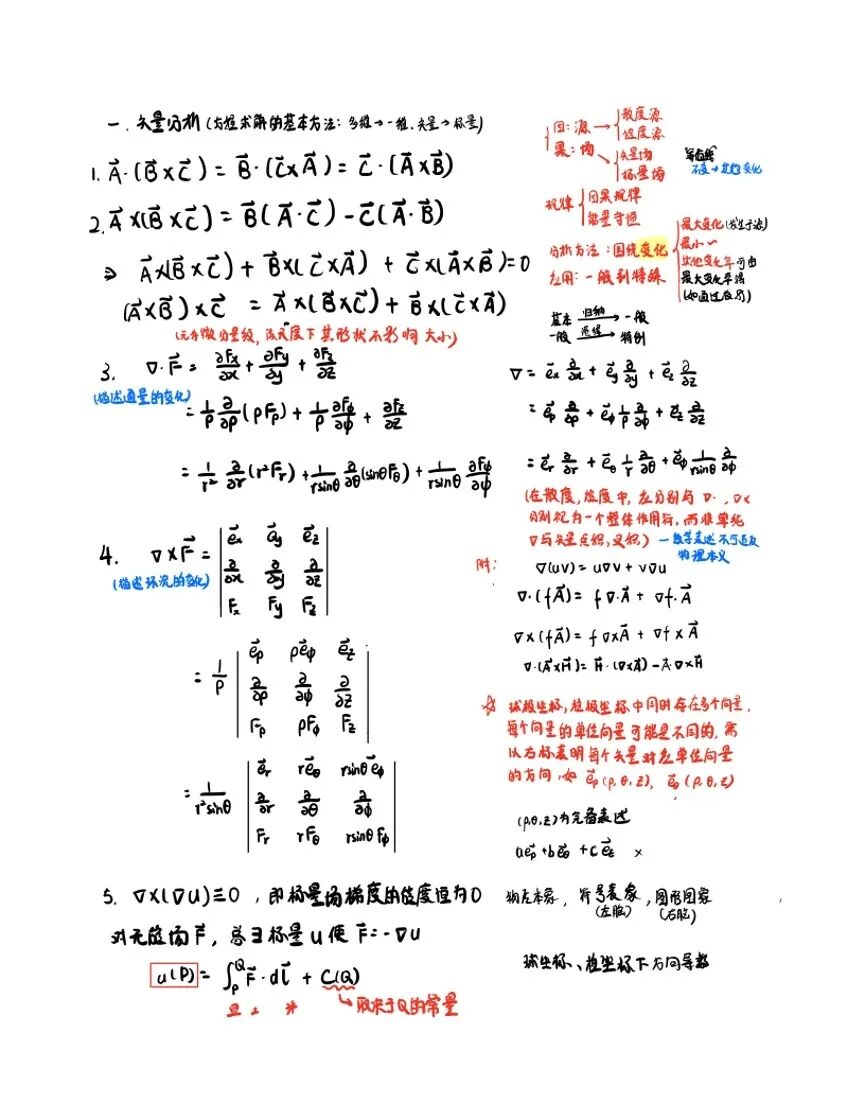 一. 矢量分析 (方程求解的基本方法: 多维→一维. 矢量→标量)
1. A⃗·(B⃗×C⃗) = B⃗·(C⃗×A⃗) = C⃗·(A⃗×B⃗)
2. A⃗×(B⃗×C⃗) = B⃗(A⃗·C⃗) - C⃗(A⃗·B⃗)
⇒ A⃗×(B⃗×C⃗) + B⃗×(C⃗×A⃗) + C⃗×(A⃗×B⃗) = 0
(A⃗×B⃗)×C⃗ = A⃗×(B⃗×C⃗) + B⃗×(C⃗×A⃗)
下其形状不影响大小)
因: 源 → { 散度源
旋度源
果: 场 → { 矢量场
标量场
不变→其他变化
规律 { 因果规律
能量守恒
分析方法: 围绕变化 { 最大变化
最小〃
其他变化率可由
最大变化率得
应用: 一般到特殊
基本 归纳→ 一般
一般 演绎→ 特例
3. ∇·F⃗ = ∂Fx/∂x + ∂Fy/∂y + ∂Fz/∂z
(描述通量的变化)
= 1/ρ ∂/∂ρ(ρFρ) + 1/ρ ∂Fϕ/∂ϕ + ∂Fz/∂z
= 1/r² ∂/∂r(r²Fr) + 1/rsinθ ∂/∂θ(sinθFθ) + 1/rsinθ ∂Fϕ/∂ϕ
∇ = e⃗x ∂/∂x + e⃗y ∂/∂y + e⃗z ∂/∂z
= e⃗ρ ∂/∂ρ + e⃗ϕ 1/ρ ∂/∂ϕ + e⃗z ∂/∂z
= e⃗r ∂/∂r + e⃗θ 1/r ∂/∂θ + e⃗ϕ 1/rsinθ ∂/∂ϕ
(在散度, 旋度中, 应分别与 ∇·, ∇×
分别视为一个整体作用符, 而非单纯
∇与矢量点积, 叉积) — 数学表述不可违反
物理本义
4. ∇×F⃗ = | e⃗x e⃗y e⃗z |
(描述环流的变化)
| ∂/∂x ∂/∂y ∂/∂z |
| Fx Fy Fz |
= 1/ρ | e⃗ρ ρe⃗ϕ e⃗z |
| ∂/∂ρ ∂/∂ϕ ∂/∂z |
| Fρ ρFϕ Fz |
= 1/r²sinθ | e⃗r re⃗θ rsinθe⃗ϕ |
| ∂/∂r ∂/∂θ ∂/∂ϕ |
| Fr rFθ rsinθFϕ |
附: ∇(uv) = u∇v + v∇u
∇·(fA⃗) = f∇·A⃗ + ∇f·A⃗
∇×(fA⃗) = f∇×A⃗ + ∇f×A⃗
∇·(A⃗×H⃗) = H⃗·(∇×A⃗) - A⃗·∇×H⃗
☆ 球极坐标, 柱极坐标中同时存在多个向量,
每个向量的单位向量可能是不同的, 需
以右标表明每个矢量对应单位向量
的方向, 如 e⃗ρ(ρ,θ,z), e⃗θ(ρ,θ,z)
(ρ,θ,z)为完备表述
ae⃗ρ + be⃗θ + ce⃗z ×
5. ∇×(∇u)≡0 , 即标量场梯度的旋度恒为0
对无旋场F⃗, 总∃标量u使F⃗=-∇u
u(P) = ∫ₚ^Q F⃗·dl⃗ + C(Q)
↳ 取决于Q的常量
物之本象, 符号表象, 图形图象
(左脑) (右脑)
球坐标、柱坐标下方向导数